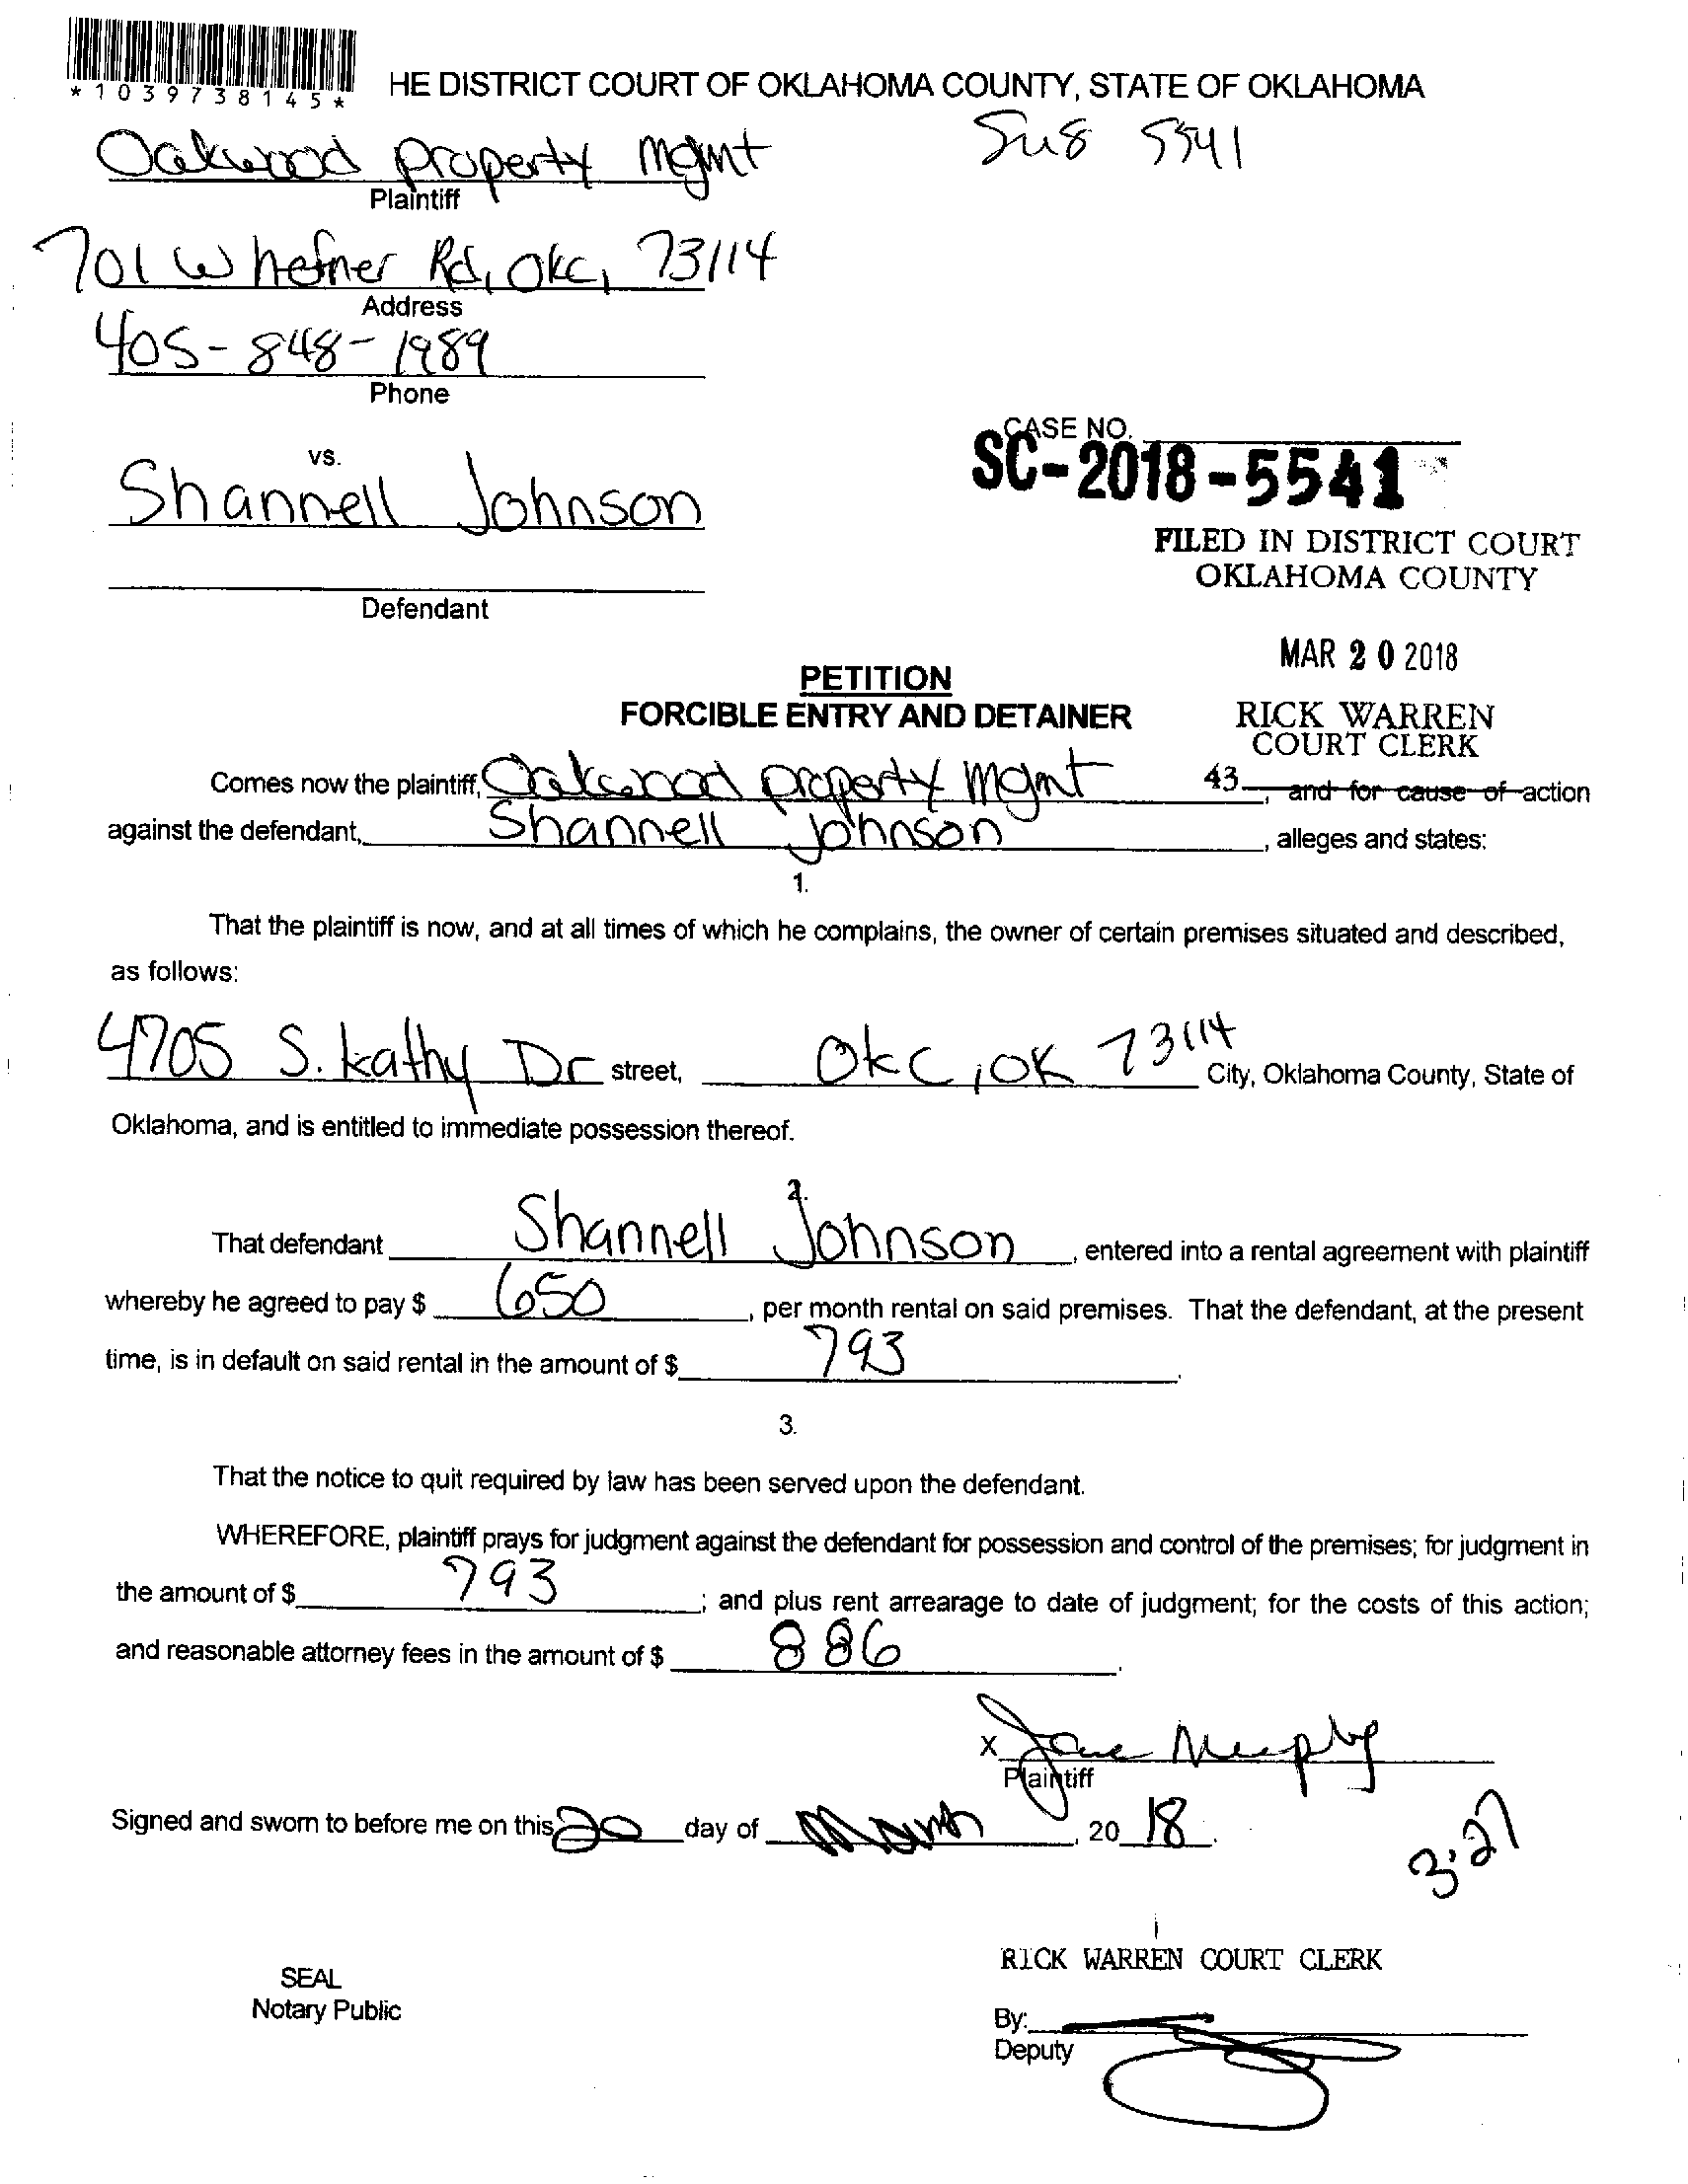 *1039738145*
HE DISTRICT COURT OF OKLAHOMA COUNTY, STATE OF OKLAHOMA
Oakwood property mgmt
5541
Plaintiff
701 W hefner Rd, OKC, 73114
Address
405-848-1989
Phone
CASE NO.
SC-2018-5541
vs.
Shannell Johnson
FILED IN DISTRICT COURT
OKLAHOMA COUNTY
Defendant
MAR 20 2018
PETITION
FORCIBLE ENTRY AND DETAINER
RICK WARREN
COURT CLERK
Comes now the plaintiff, Oakwood property mgmt 43 , and for cause of action
against the defendant, Shannell Johnson , alleges and states:
1.
That the plaintiff is now, and at all times of which he complains, the owner of certain premises situated and described,
as follows:
4705 S. kathy Dr street, OKC, OK 73114 City, Oklahoma County, State of
Oklahoma, and is entitled to immediate possession thereof.
2.
That defendant Shannell Johnson , entered into a rental agreement with plaintiff
whereby he agreed to pay $ 650 , per month rental on said premises. That the defendant, at the present
time, is in default on said rental in the amount of $ 793 .
3.
That the notice to quit required by law has been served upon the defendant.
WHEREFORE, plaintiff prays for judgment against the defendant for possession and control of the premises; for judgment in
the amount of $ 793 ; and plus rent arrearage to date of judgment; for the costs of this action;
and reasonable attorney fees in the amount of $ 886 .
x Jane Murphy
Plaintiff
Signed and sworn to before me on this 20 day of March , 20 18 .
3:27
RICK WARREN COURT CLERK
SEAL
Notary Public
By:
Deputy